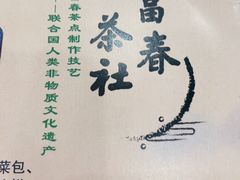 富春
茶社
春茶点制作技艺
——联合国人类非物质文化遗产
菜包、